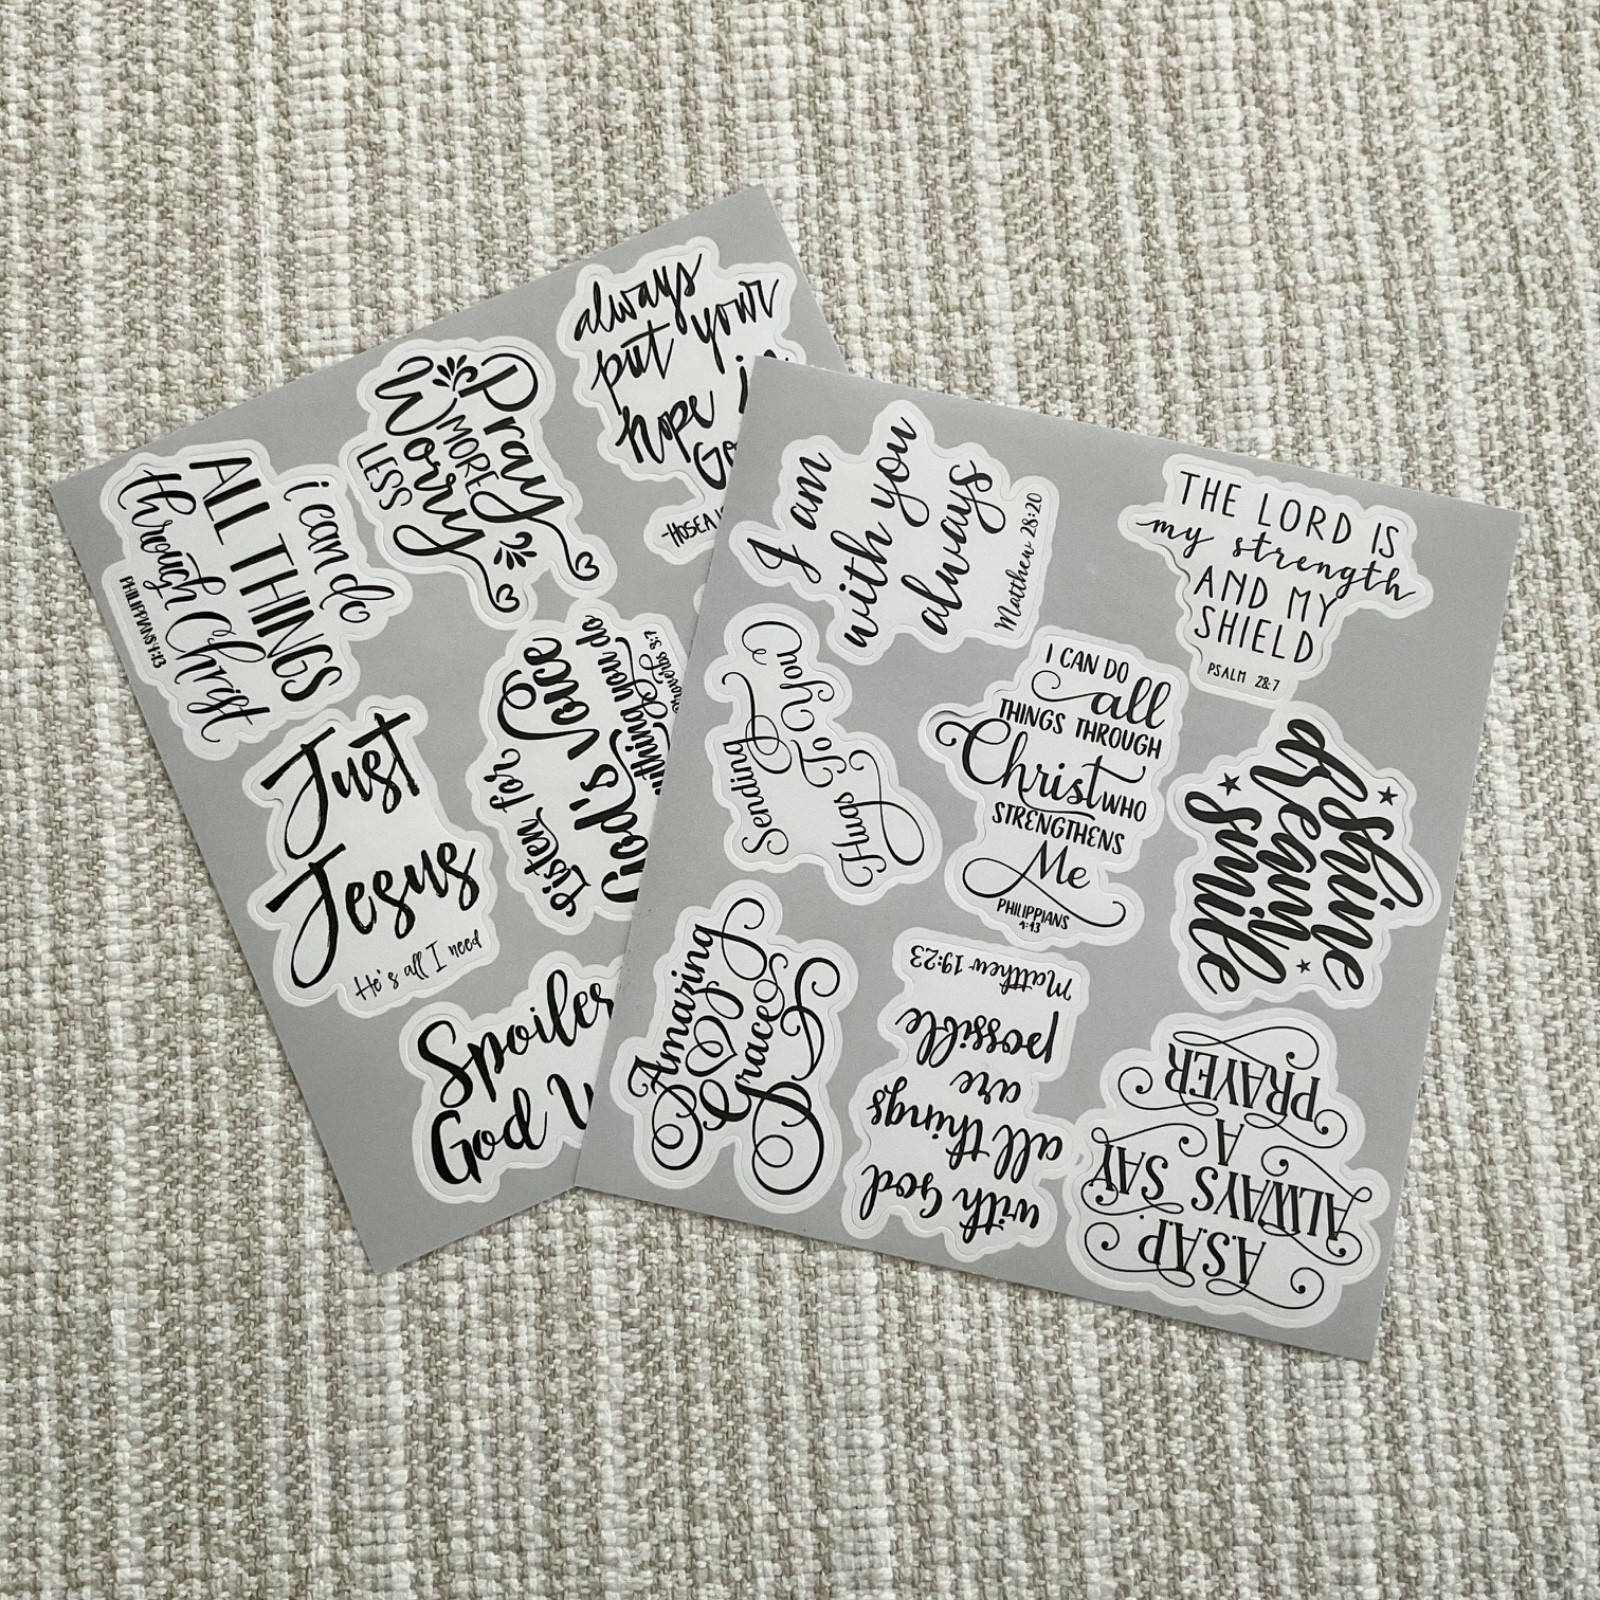 always
put your
hope
-HOSEA
Pray
MORE
Worry
LESS
i can do
ALL THINGS
through Christ
PHILIPPIANS 4:13
Listen for
God's voice
you do
Proverbs 3:7
Just
Jesus
He's all I need
Spoiler
God
I am
with you
always
Matthew 28:20
THE LORD IS
my strength
AND MY
SHIELD
PSALM 28:7
Sending
Hugs To You
I CAN DO
all
THINGS THROUGH
Christ WHO
STRENGTHENS
Me
PHILIPPIANS
4:13
shine
dream
smile
Amazing
Grace
with God
all things
are
possible
Matthew 19:23
A.S.A.P.
ALWAYS SAY
A
PRAYER